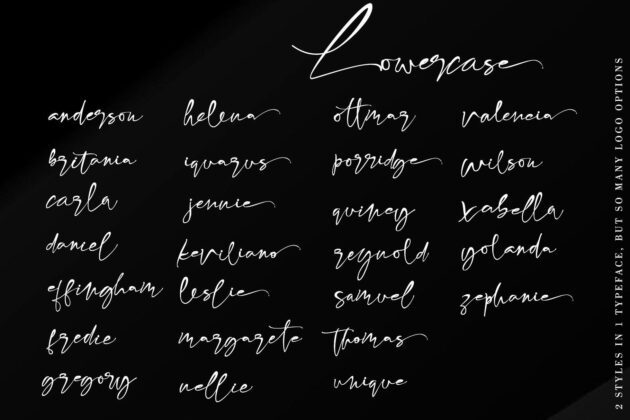 Lowercase
anderson
britania
carla
daniel
effingham
fredie
gregory
helena
iquarus
jennie
keviliano
leslie
margarete
nellie
ottmar
porridge
quincy
reynold
samuel
Thomas
unique
valencia
wilson
xabella
yolanda
zephanie
2 STYLES IN 1 TYPEFACE, BUT SO MANY LOGO OPTIONS